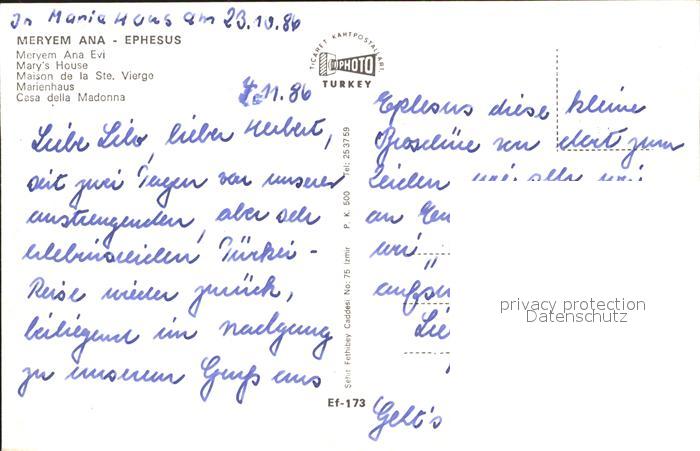 In Maria Haus am 23.10.86
MERYEM ANA - EPHESUS
Meryem Ana Evi
Mary's House
Maison de la Ste. Vierge
Marienhaus
Casa della Madonna
TICARET KARTPOSTAL ART.
PHOTO
TURKEY
7.11.86
Liebe Lilo, lieber Herbert,
seit zwei Tagen von unserer
anstrengenden, aber sehr
erlebnisreichen Türkei-
Reise wieder zurück,
beiliegend im Nachgang
zu unserem Gruß aus
Şehit Fethibey Caddesi No: 75 Izmir P. K. 500 Tel: 253759
Ef-173
Ephesus diese kleine
Broschüre von dort zum
Zeichen wie sehr wir
an
wir
"
Geht's
privacy protection
Datenschutz